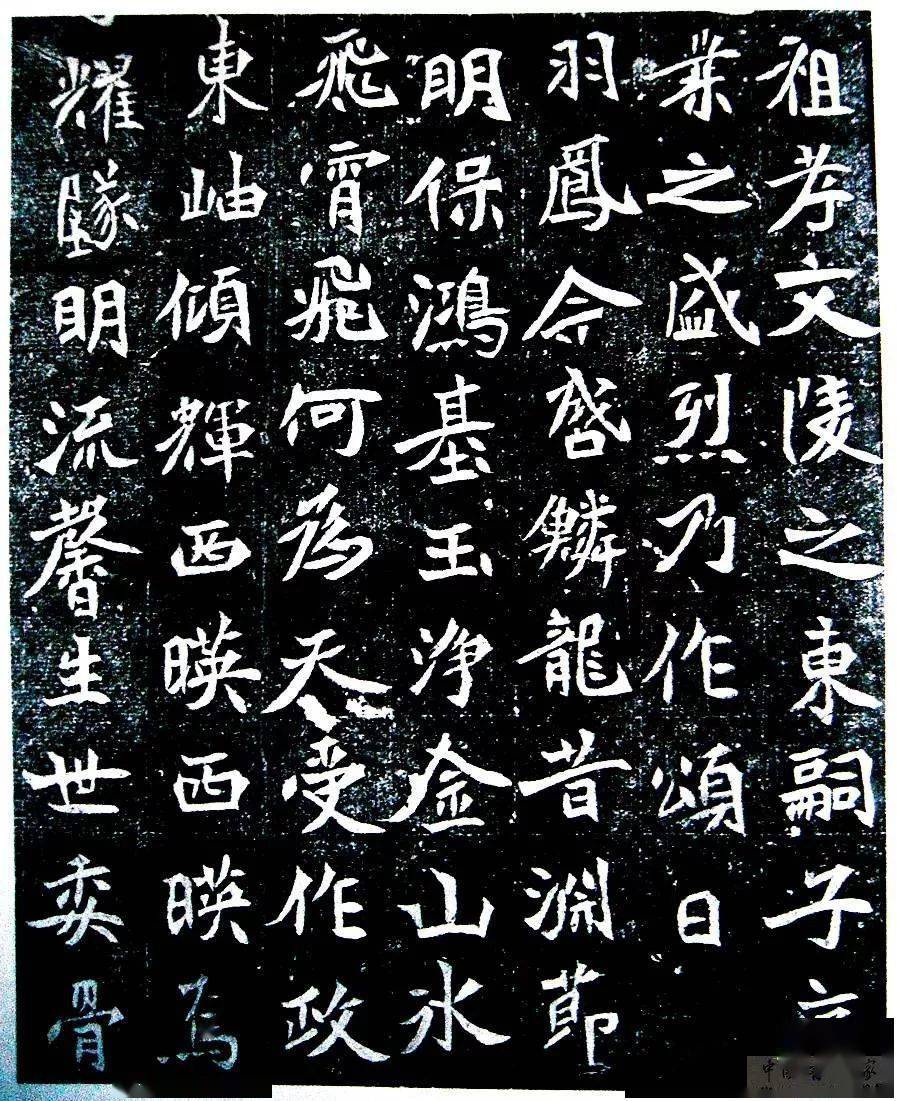 祖孝文陵之東嗣子
業之盛烈乃作頌曰
羽鳳今啓鱗龍昔淵節
明保鴻基玉淨金山水
飛霄飛何為天受作政
東岫傾輝西暎西暎焉
耀墜明流馨生世委骨